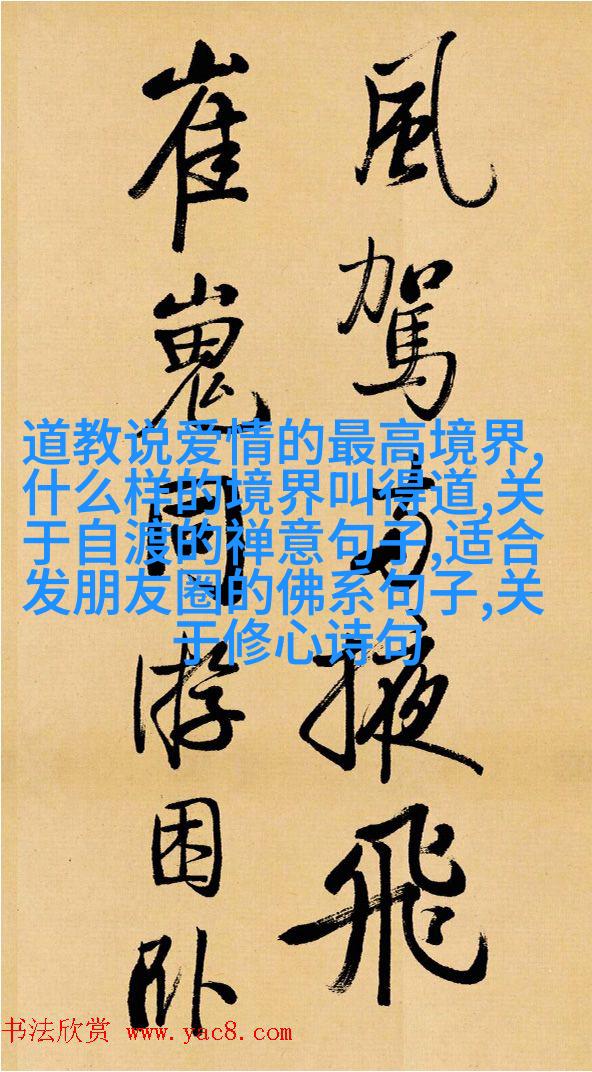 風駕掖飛
崔嵬游困卧
道教说爱情的最高境界,
什么样的境界叫得道,关
于自渡的禅意句子,适合
发朋友圈的佛系句子,关
于修心诗句
书法欣赏 www.yac8.com